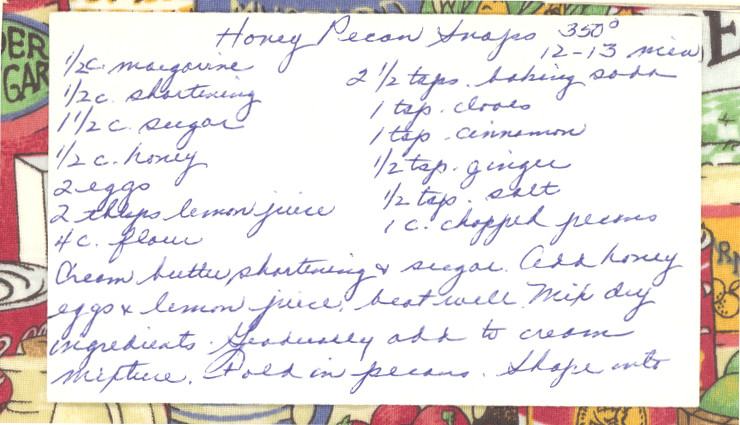 Honey Pecan Snaps 350°
12-13 min
1/2 c. margarine
1/2 c. shortening
1 1/2 c. sugar
1/2 c. honey
2 eggs
2 tblsps lemon juice
4 c. flour
2 1/2 tsps. baking soda
1 tsp. cloves
1 tsp. cinnamon
1/2 tsp. ginger
1/2 tsp. salt
1 c. chopped pecans
Cream butter, shortening & sugar. Add honey
eggs & lemon juice, beat well. Mix dry
ingredients. Gradually add to cream
mixture. Fold in pecans. Shape into
DER
GAR
E